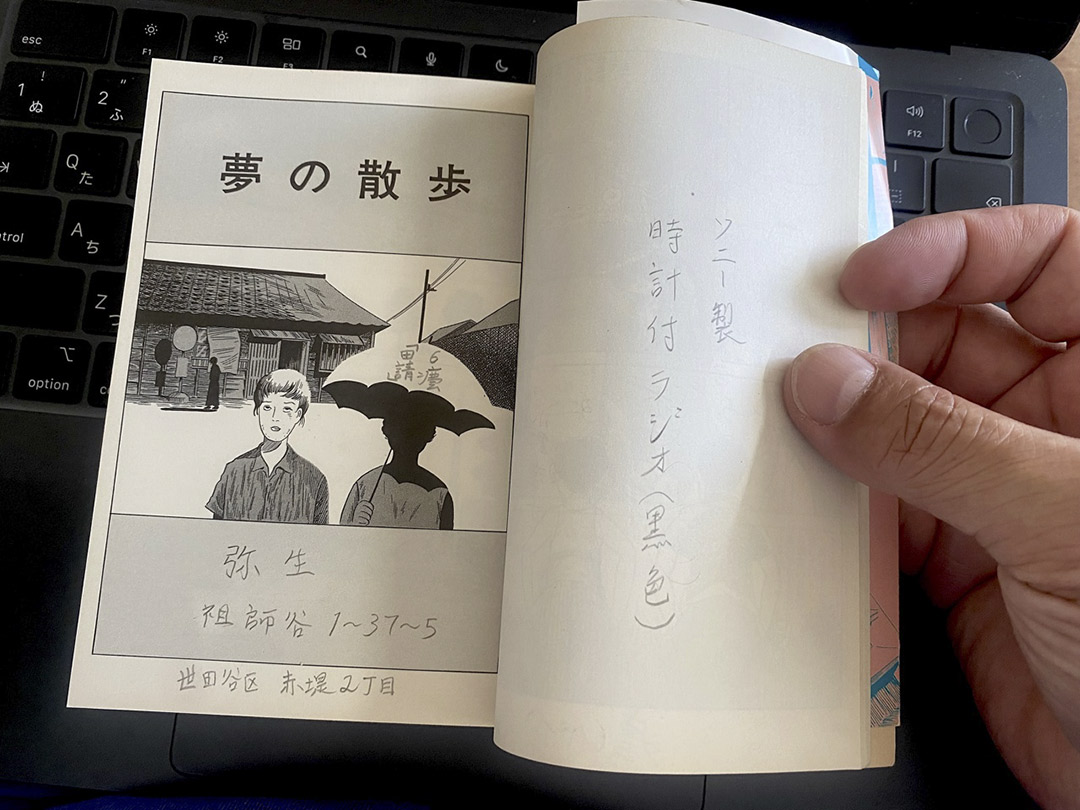 夢の散歩
弥生
祖師谷 1~37~5
世田谷区 赤堤2丁目
ソニー製
時計付ラジオ(黒色)
esc
F1
F2
F3
!
1
ぬ
"
2
ふ
Q
た
A
ち
Z
っ
option
F12